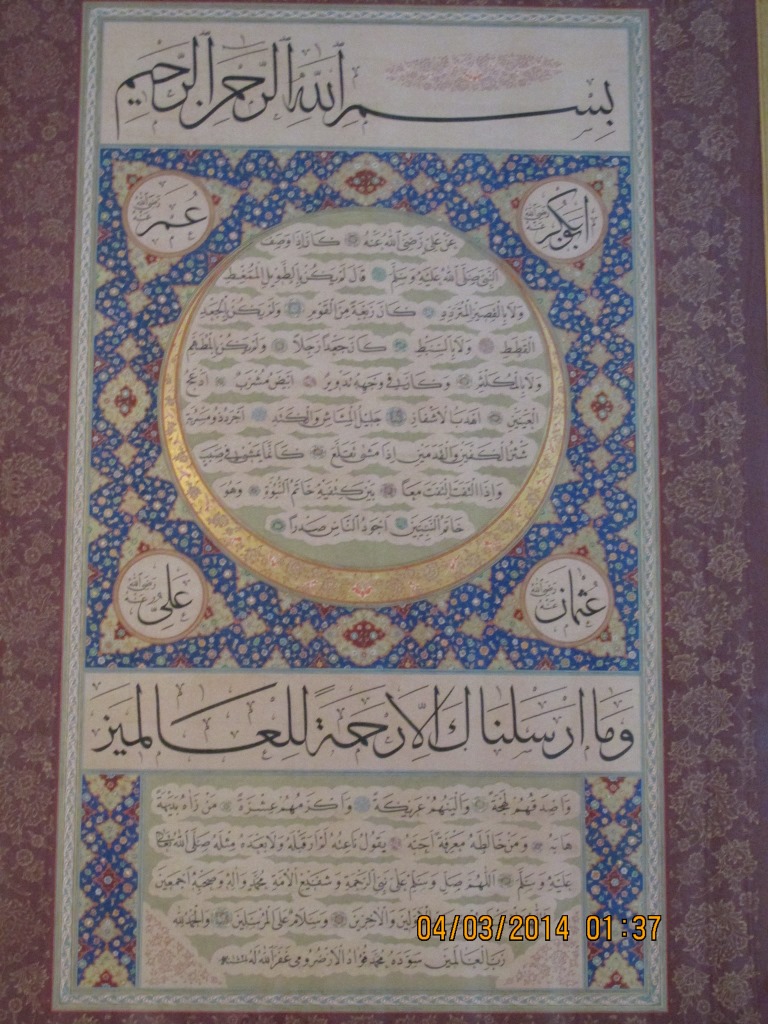 بِسْمِ ٱللَّهِ ٱلرَّحْمَٰنِ ٱلرَّحِيمِ
ابوبكر رضى الله عنه
عمر رضى الله عنه
عن على رضى الله عنه كان اذا وصف
النبى صلى الله عليه وسلم قال لم يكن بالطويل الممغط
ولا بالقصير المتردد كان ربعة من القوم ولم يكن بالجعد
القطط ولا بالسبط كان جعدا رجلا ولم يكن بالمطهم
ولا بالمكلثم وكان فى وجهه تدوير ابيض مشرب ادعج
العينين اهدب الاشفار جليل المشاش والكتد اجرد ذو مسربة
شثن الكفين والقدمين اذا مشى تقلع كانما يمشى فى صبب
واذا التفت التفت معا بين كتفيه خاتم النبوة وهو
خاتم النبيين اجود الناس صدرا
عثمان رضى الله عنه
على رضى الله عنه
وما ارسلناك الا رحمة للعالمين
واصدقهم لهجة والينهم عريكة واكرمهم عشرة من رآه بديهة
هابه ومن خالطه معرفة احبه يقول ناعته لم ار قبله ولا بعده مثله صلى الله
عليه وسلم اللهم صل وسلم على نبى الرحمة وشفيع الامة محمد وآله وصحبه اجمعين
والآخرين وسلام على المرسلين والحمد لله
رب العالمين سوده محمد فؤاد الارضرومى غفر الله له
04/03/2014 01:37